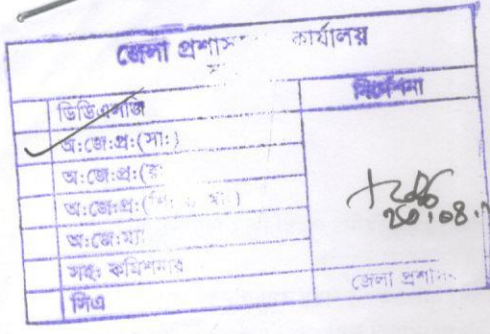 জেলা প্রশাস কার্যালয়
নির্দেশনা
ডিডিএলজি
অ:জে:প্র:(সা:)
অ:জে:প্র:(রা
অ:জে:প্র:(শি: ও মা:)
অ:জে:ম্যা
সহ: কমিশনার
সিএ
জেলা প্রশাস